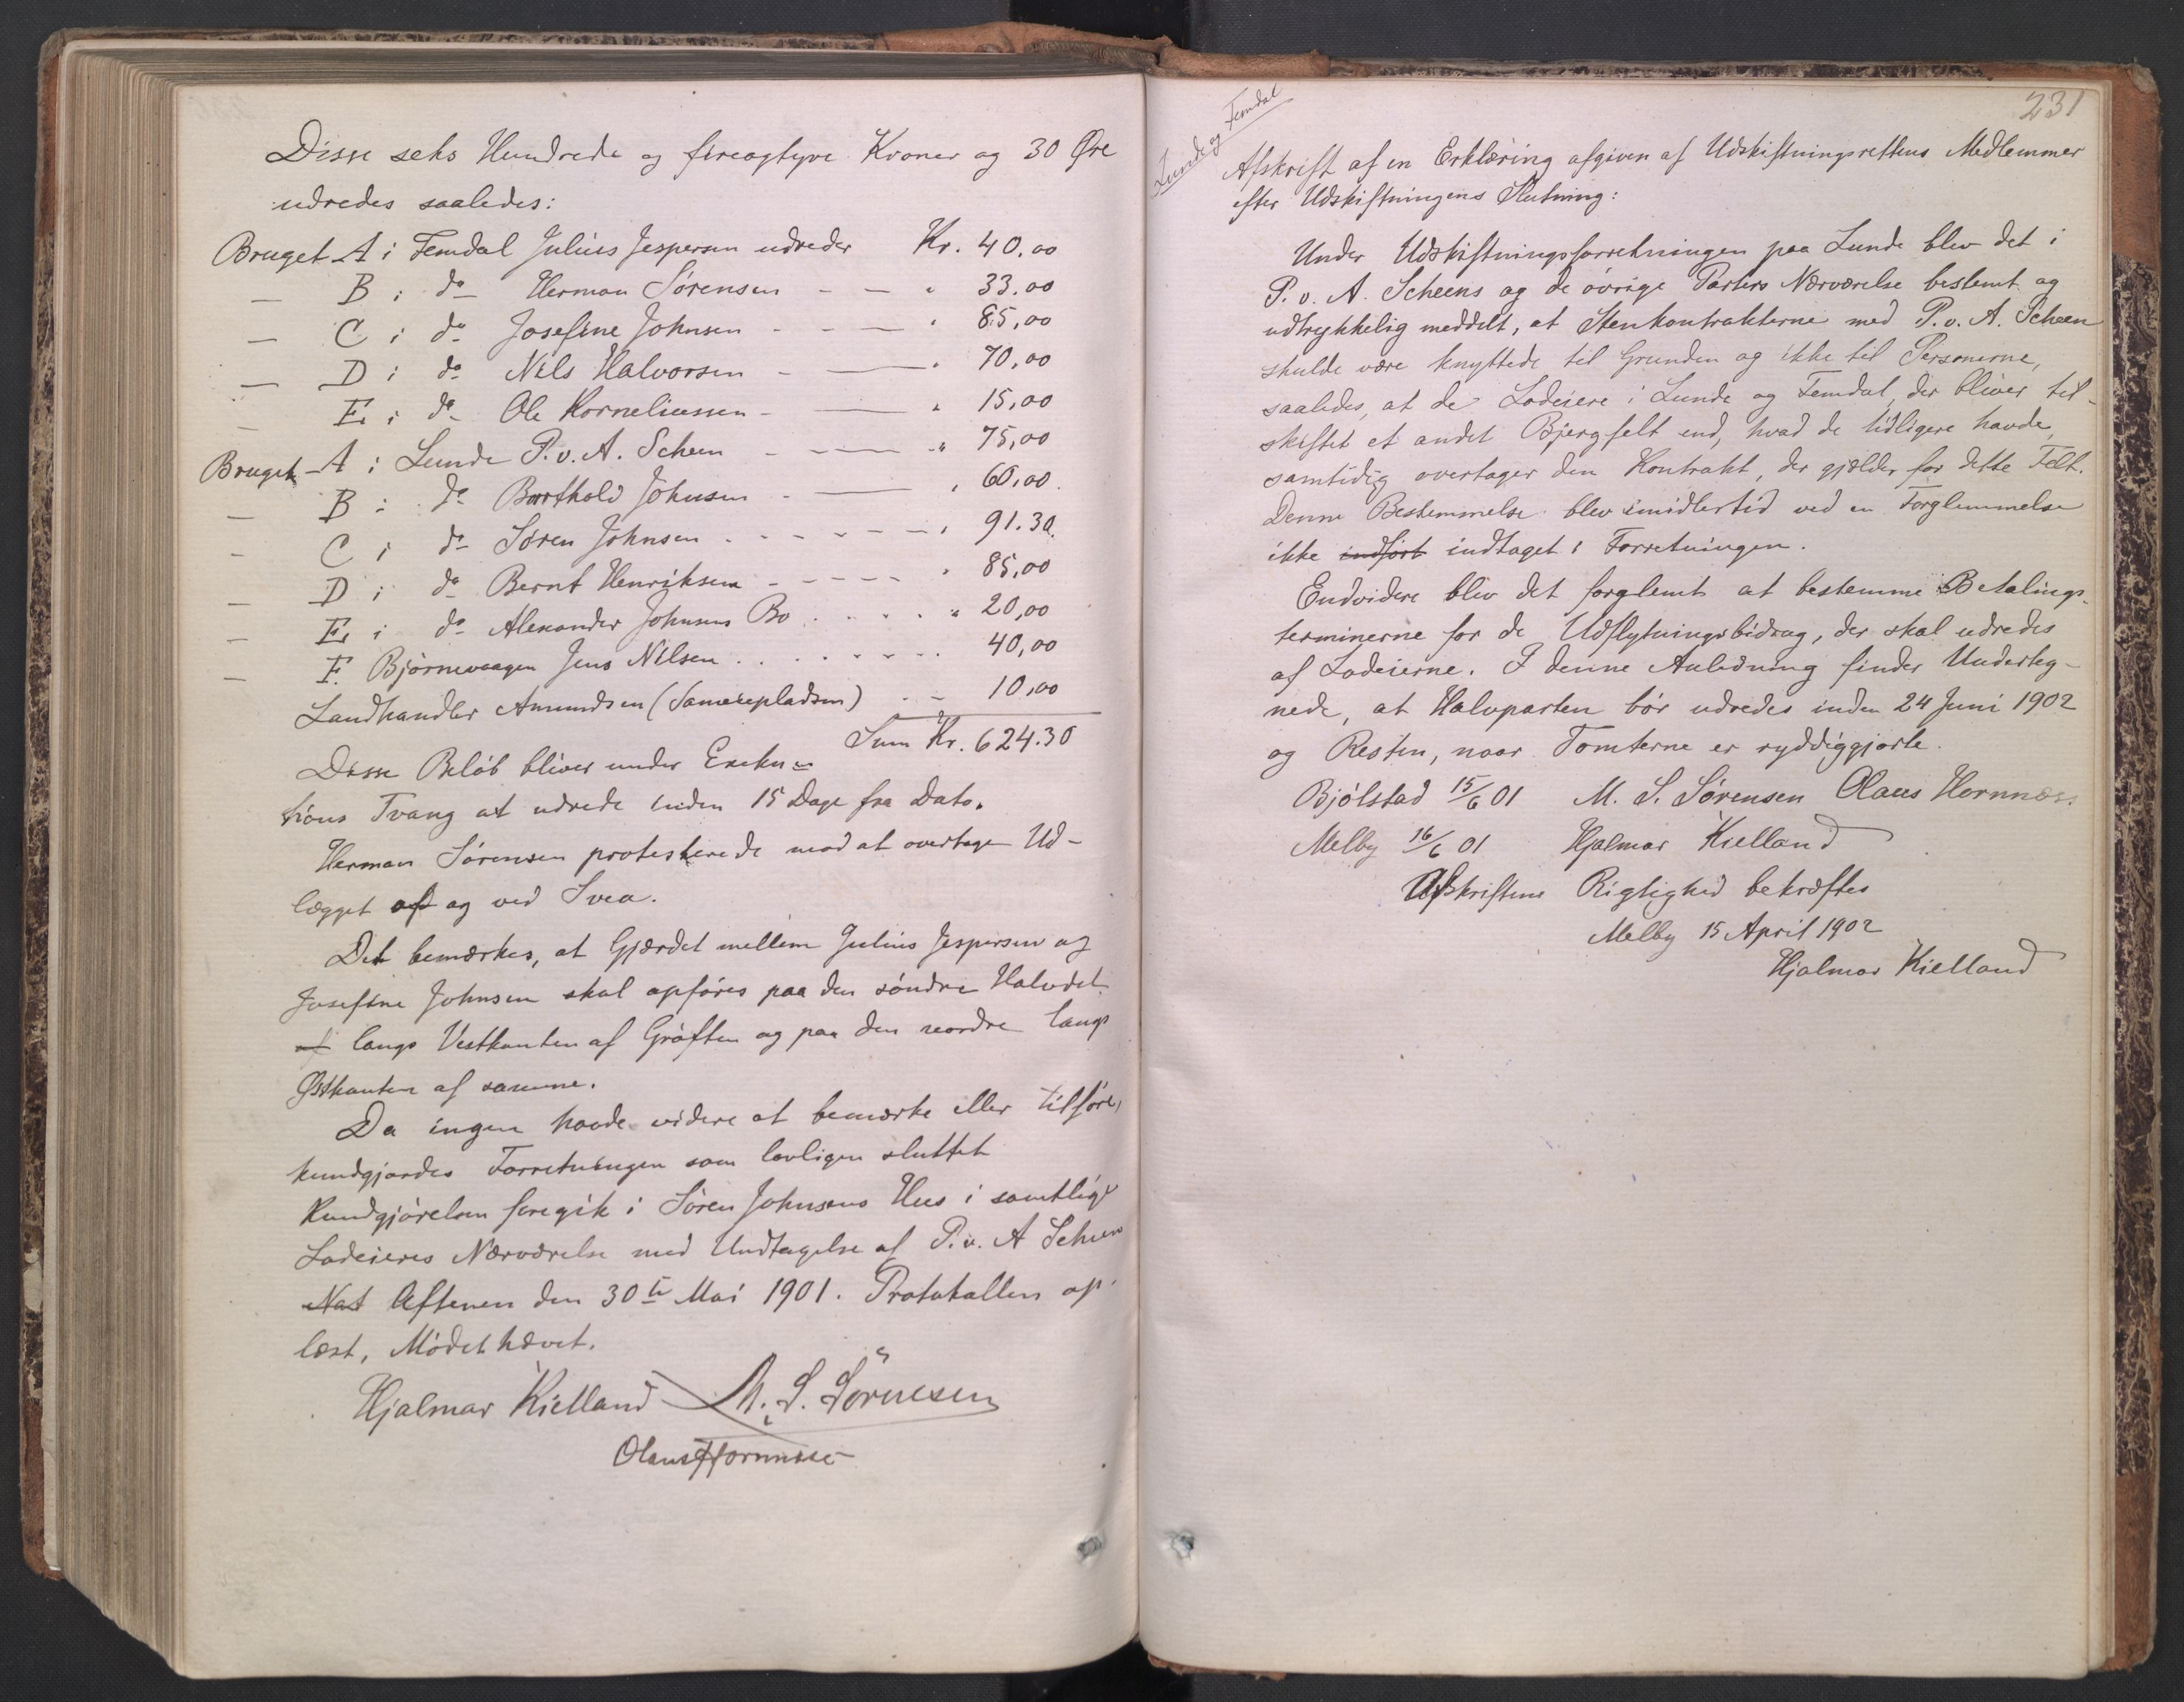 Disse seks Hundrede og fireogtyve Kroner og 30 Øre
udredes saaledes:
Bruget A i Femdal Julius Jespersen udreder Kr. 40.00
— B i do Herman Sørensen - — " 33.00
— C i do Josefine Johnsen - — " 85,00
— D i do Nils Halvorsen - — " 70,00
— E i do Ole Korneliussen - — " 15,00
Bruget A i Lunde P. v. A. Scheen - — " 75,00
— B i do Barthold Johnsen - — " 60,00.
- C i do Søren Johnsen - - - - " 91.30.
— D i do Bernt Henriksen - - - - " 85,00
— E i do Alexander Johnsens Bo . . . . " 20,00
— F. Bjørnevaagen Jens Nilsen . . . . . . 40,00
Landhandler Amundsen (Sameiepladsen) . - 10,00
Sum Kr. 624.30
Disse Beløb bliver under Exeku=
tions Tvang at udrede inden 15 Dage fra Dato.
Herman Sørensen protesterede mod at overtage Ud-
lægget af og ved Svea.
Det bemærkes, at Gjærdet mellem Julius Jespersen og
Josefine Johnsen skal opføres paa den søndre Halvdel
af langs Vestkanten af Grøften og paa den nordre langs
Østkanten af samme.
Da ingen havde videre at bemærke eller tilføre,
kundgjordes Forretningen som lovligen sluttet
Kundgjørelsen foregik i Søren Johnsens Hus i samtlige
Lodeieres Nærværelse med Undtagelse af P. v. A Scheen
Nat Aftenen den 30te Mai 1901. Protokollen op-
læst, Mødet hævet.
Hjalmar Kielland M. S. Sørensen
Olaus Hornnæss
231
Lunde og Femdal
Afskrift af en Erklæring afgiven af Udskiftningsrettens Medlemmer
efter Udskiftningens Slutning:
Under Udskiftningsforretningen paa Lunde blev det i
P. v. A. Scheens og de øvrige Parters Nærværelse bestemt og
udtrykkelig meddelt, at Stenkontrakterne med P. v. A. Scheen
skulde være knyttede til Grunden og ikke til Personerne,
saaledes, at de Lodeiere i Lunde og Femdal, der bliver til-
skiftet et andet Bjergfelt end, hvad de tidligere havde,
samtidig overtager den Kontrakt, der gjælder for dette Felt.
Denne Bestemmelse blev imidlertid ved en Forglemmelse
ikke indført indtaget i Forretningen.
Endvidere blev det forglemt at bestemme Betalings-
terminerne for de Udflytningsbidrag, der skal udredes
af Lodeierne. I denne Anledning finder Underteg-
nede, at Halvparten bør udredes inden 24 Juni 1902
og Resten, naar Tomterne er ryddiggjorte.
Bjølstad 15/6 01 M. S. Sørensen Olaus Hornnæss.
Melby 16/6 01 Hjalmar Kielland
Afskriftens Rigtighed bekræftes
Melby 15 April 1902
Hjalmar Kielland